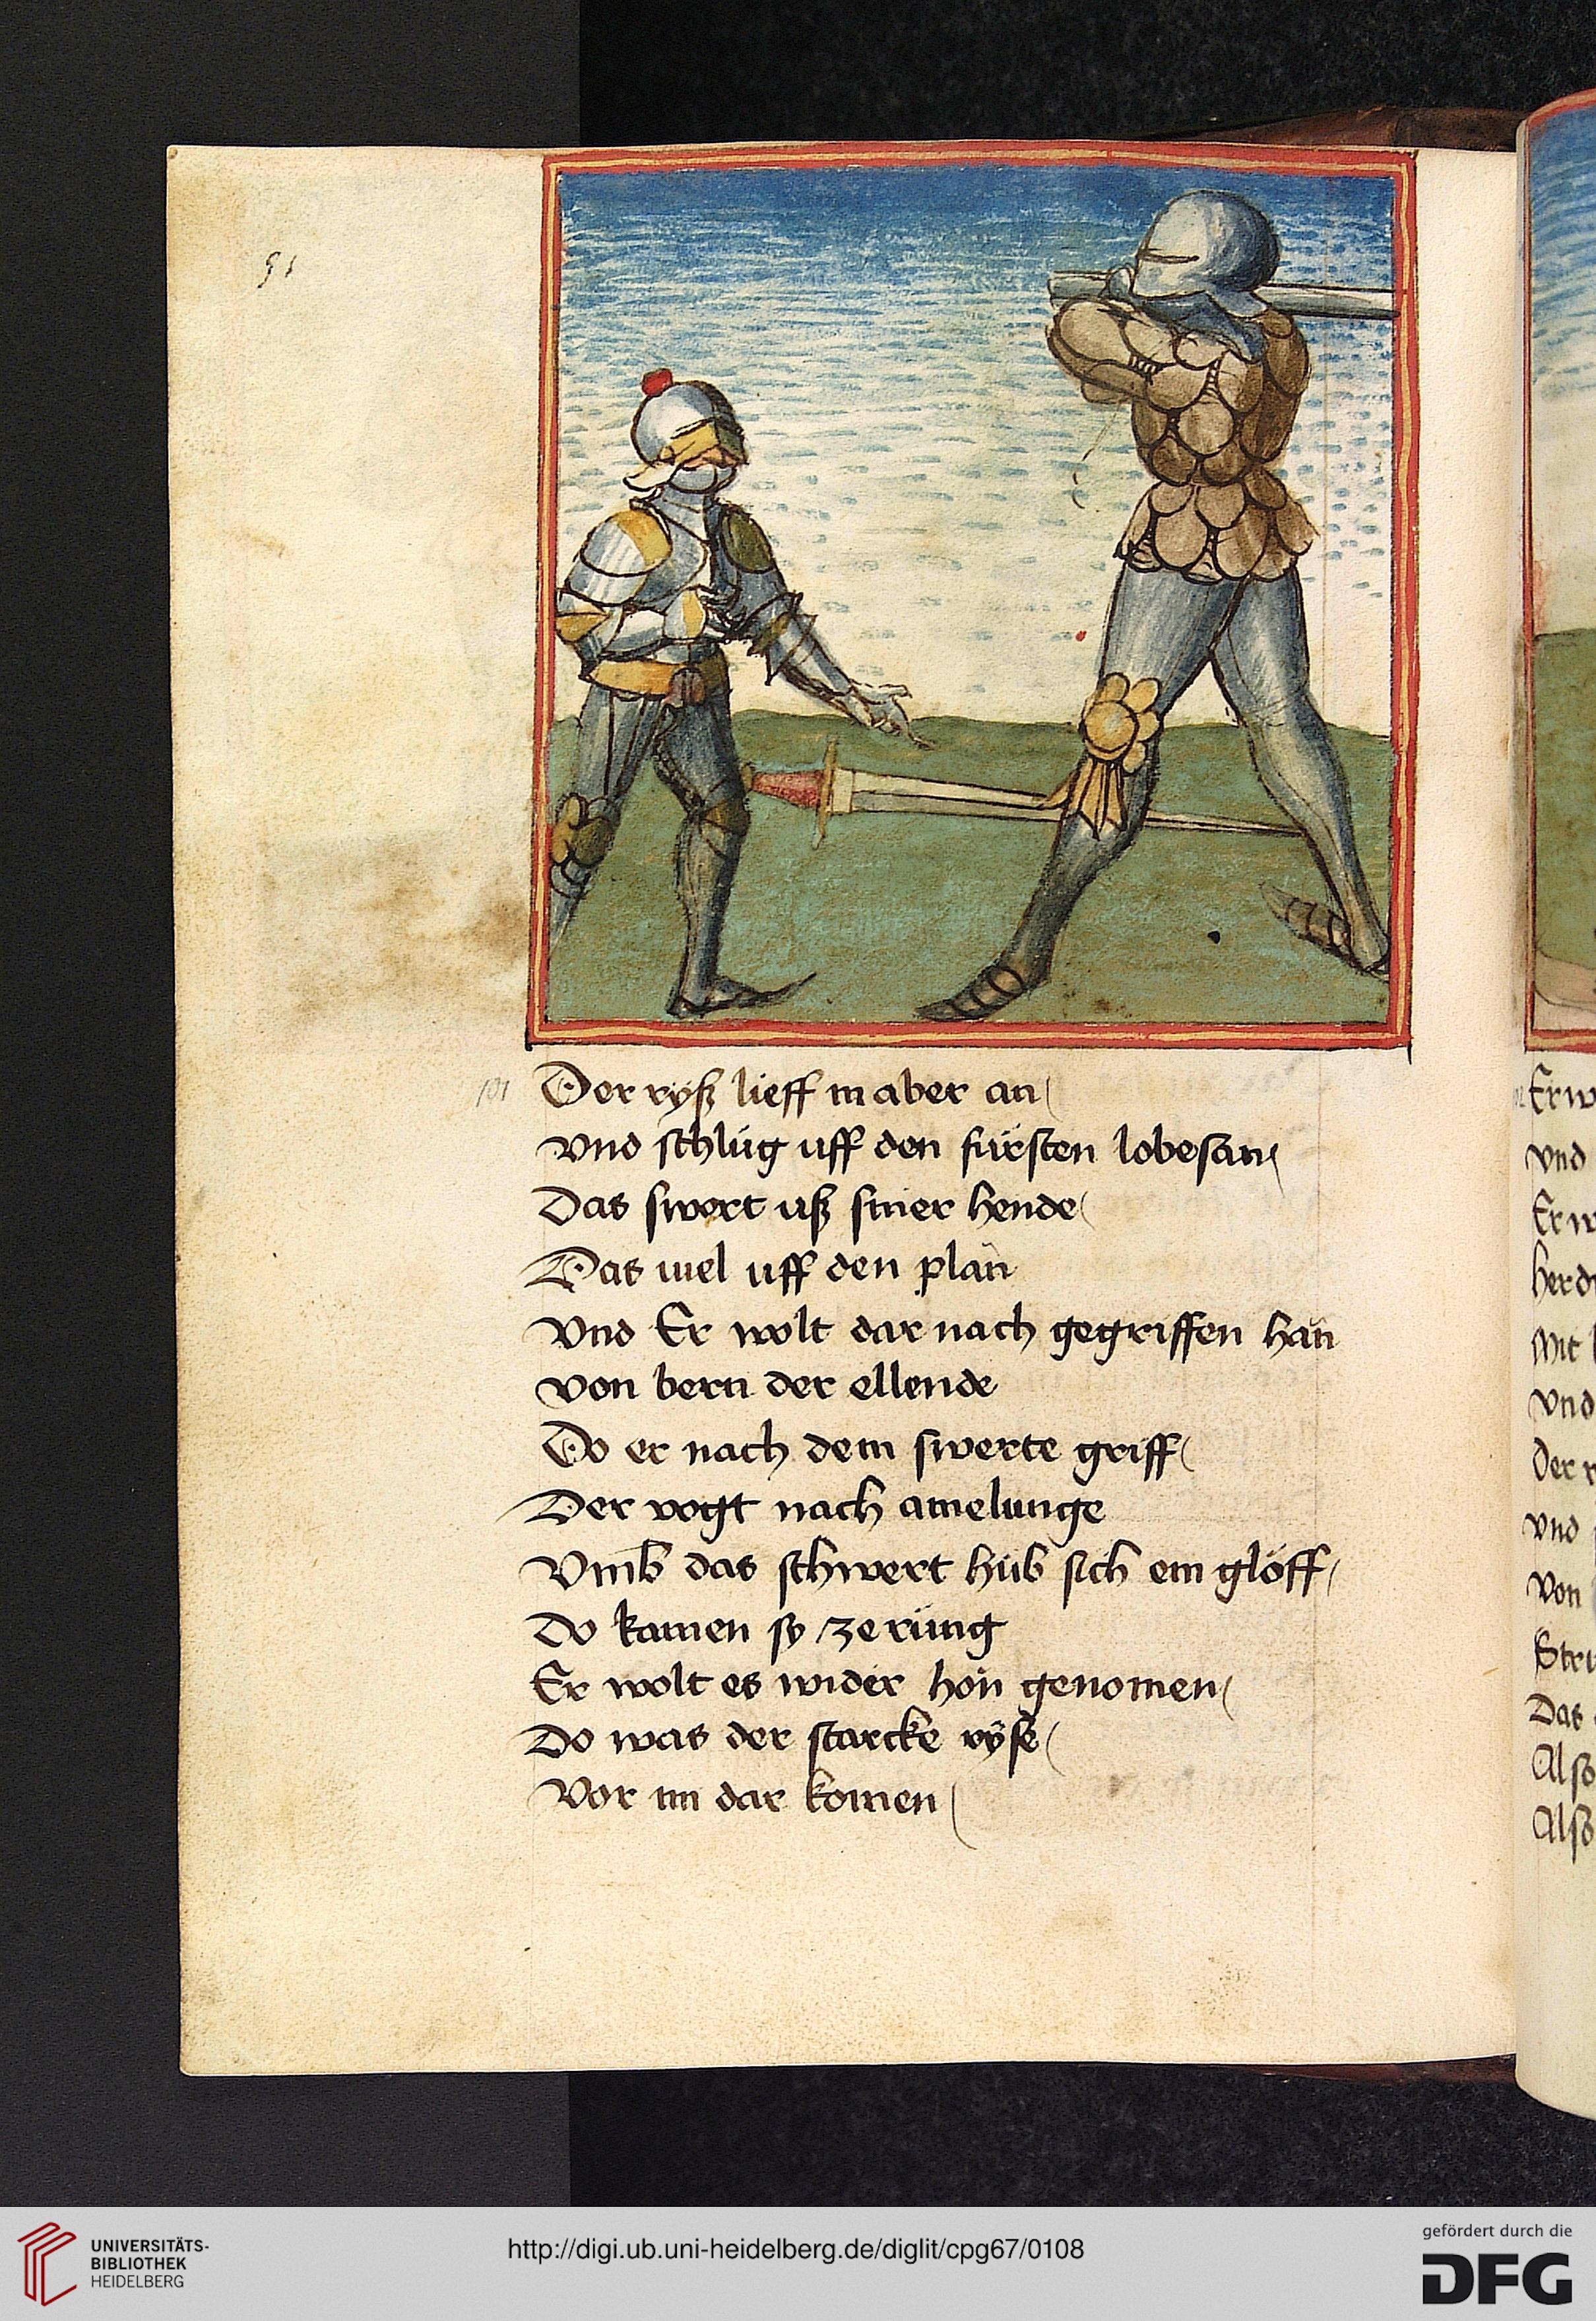 91
101
Der ryß lieff in aber an
vnd schlüg uff den fürsten lobesan
Das swert uß siner hende
Das viel uff den plan
Vnd Er wolt dar nach gegriffen han
von bern der ellende
Do er nach dem swerte griff
Der vogt nach amelunge
Vmb das schwert hüb sich ein glöff
Do kamen sy ze rüng
Er wolt es wider hon genomen
Do was der starcke ryse
Vor im dar komen
Erw
vnd
Erw
Herd
Mit
vnd
Der r
vnd
Von
Stri
Das
Also
Also
UNIVERSITÄTS-
BIBLIOTHEK
HEIDELBERG
http://digi.ub.uni-heidelberg.de/diglit/cpg67/0108
gefördert durch die
DFG